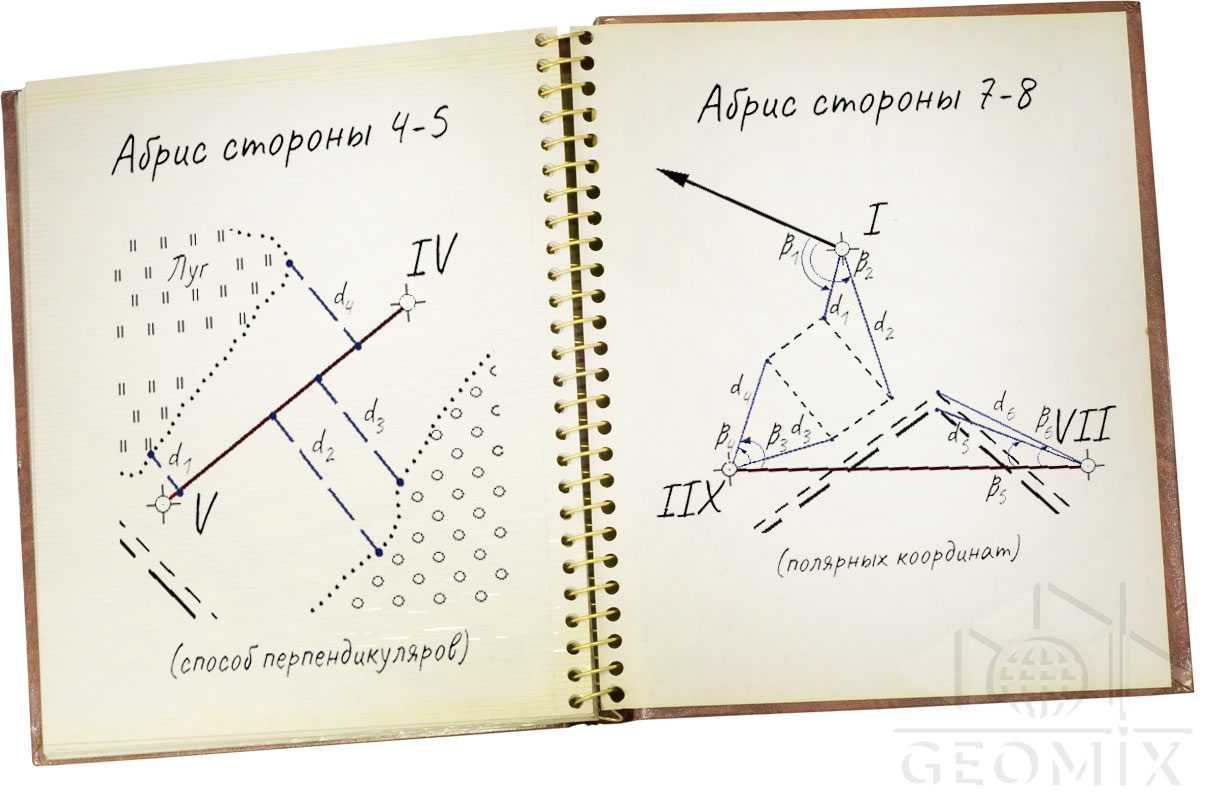 Абрис стороны 4-5
IV
Луг
d4
d3
d2
d1
V
(способ перпендикуляров)
Абрис стороны 7-8
I
β1
β2
d1
d2
d4
d6
β4
β3
d3
d5
β6
VII
IIX
β5
(полярных координат)
GEOMIX